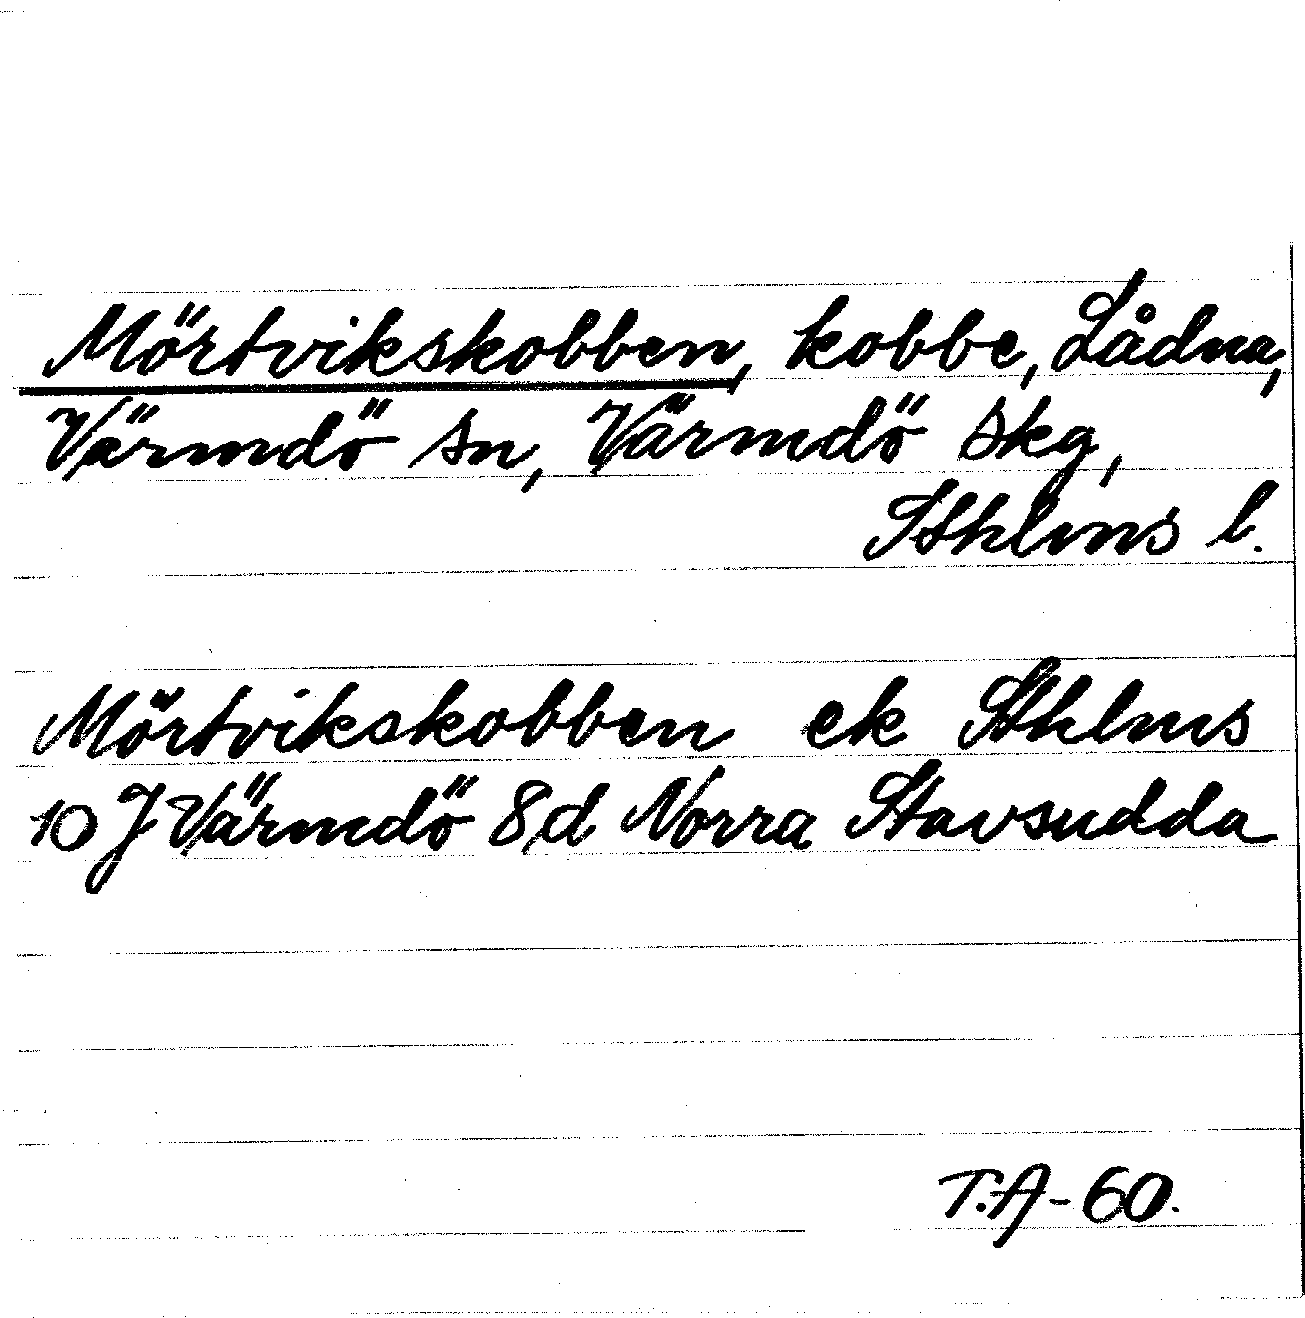 Mörtvikskobben, kobbe, Lådna,
Värmdö sn, Värmdö skg,
Sthlms l.
Mörtvikskobben ek Sthlms
10 J Värmdö 8d Norra Stavsudda
T.A-60.